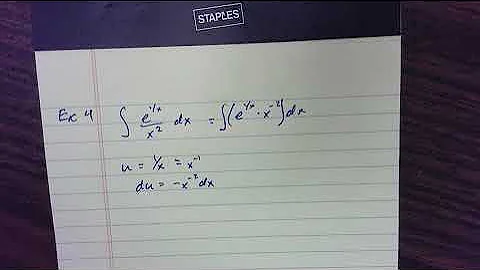 STAPLES
Ex 4 ∫ e^{1/x}/x² dx = ∫(e^{1/x} · x^{-2})dx
u = 1/x = x^{-1}
du = -x^{-2}dx